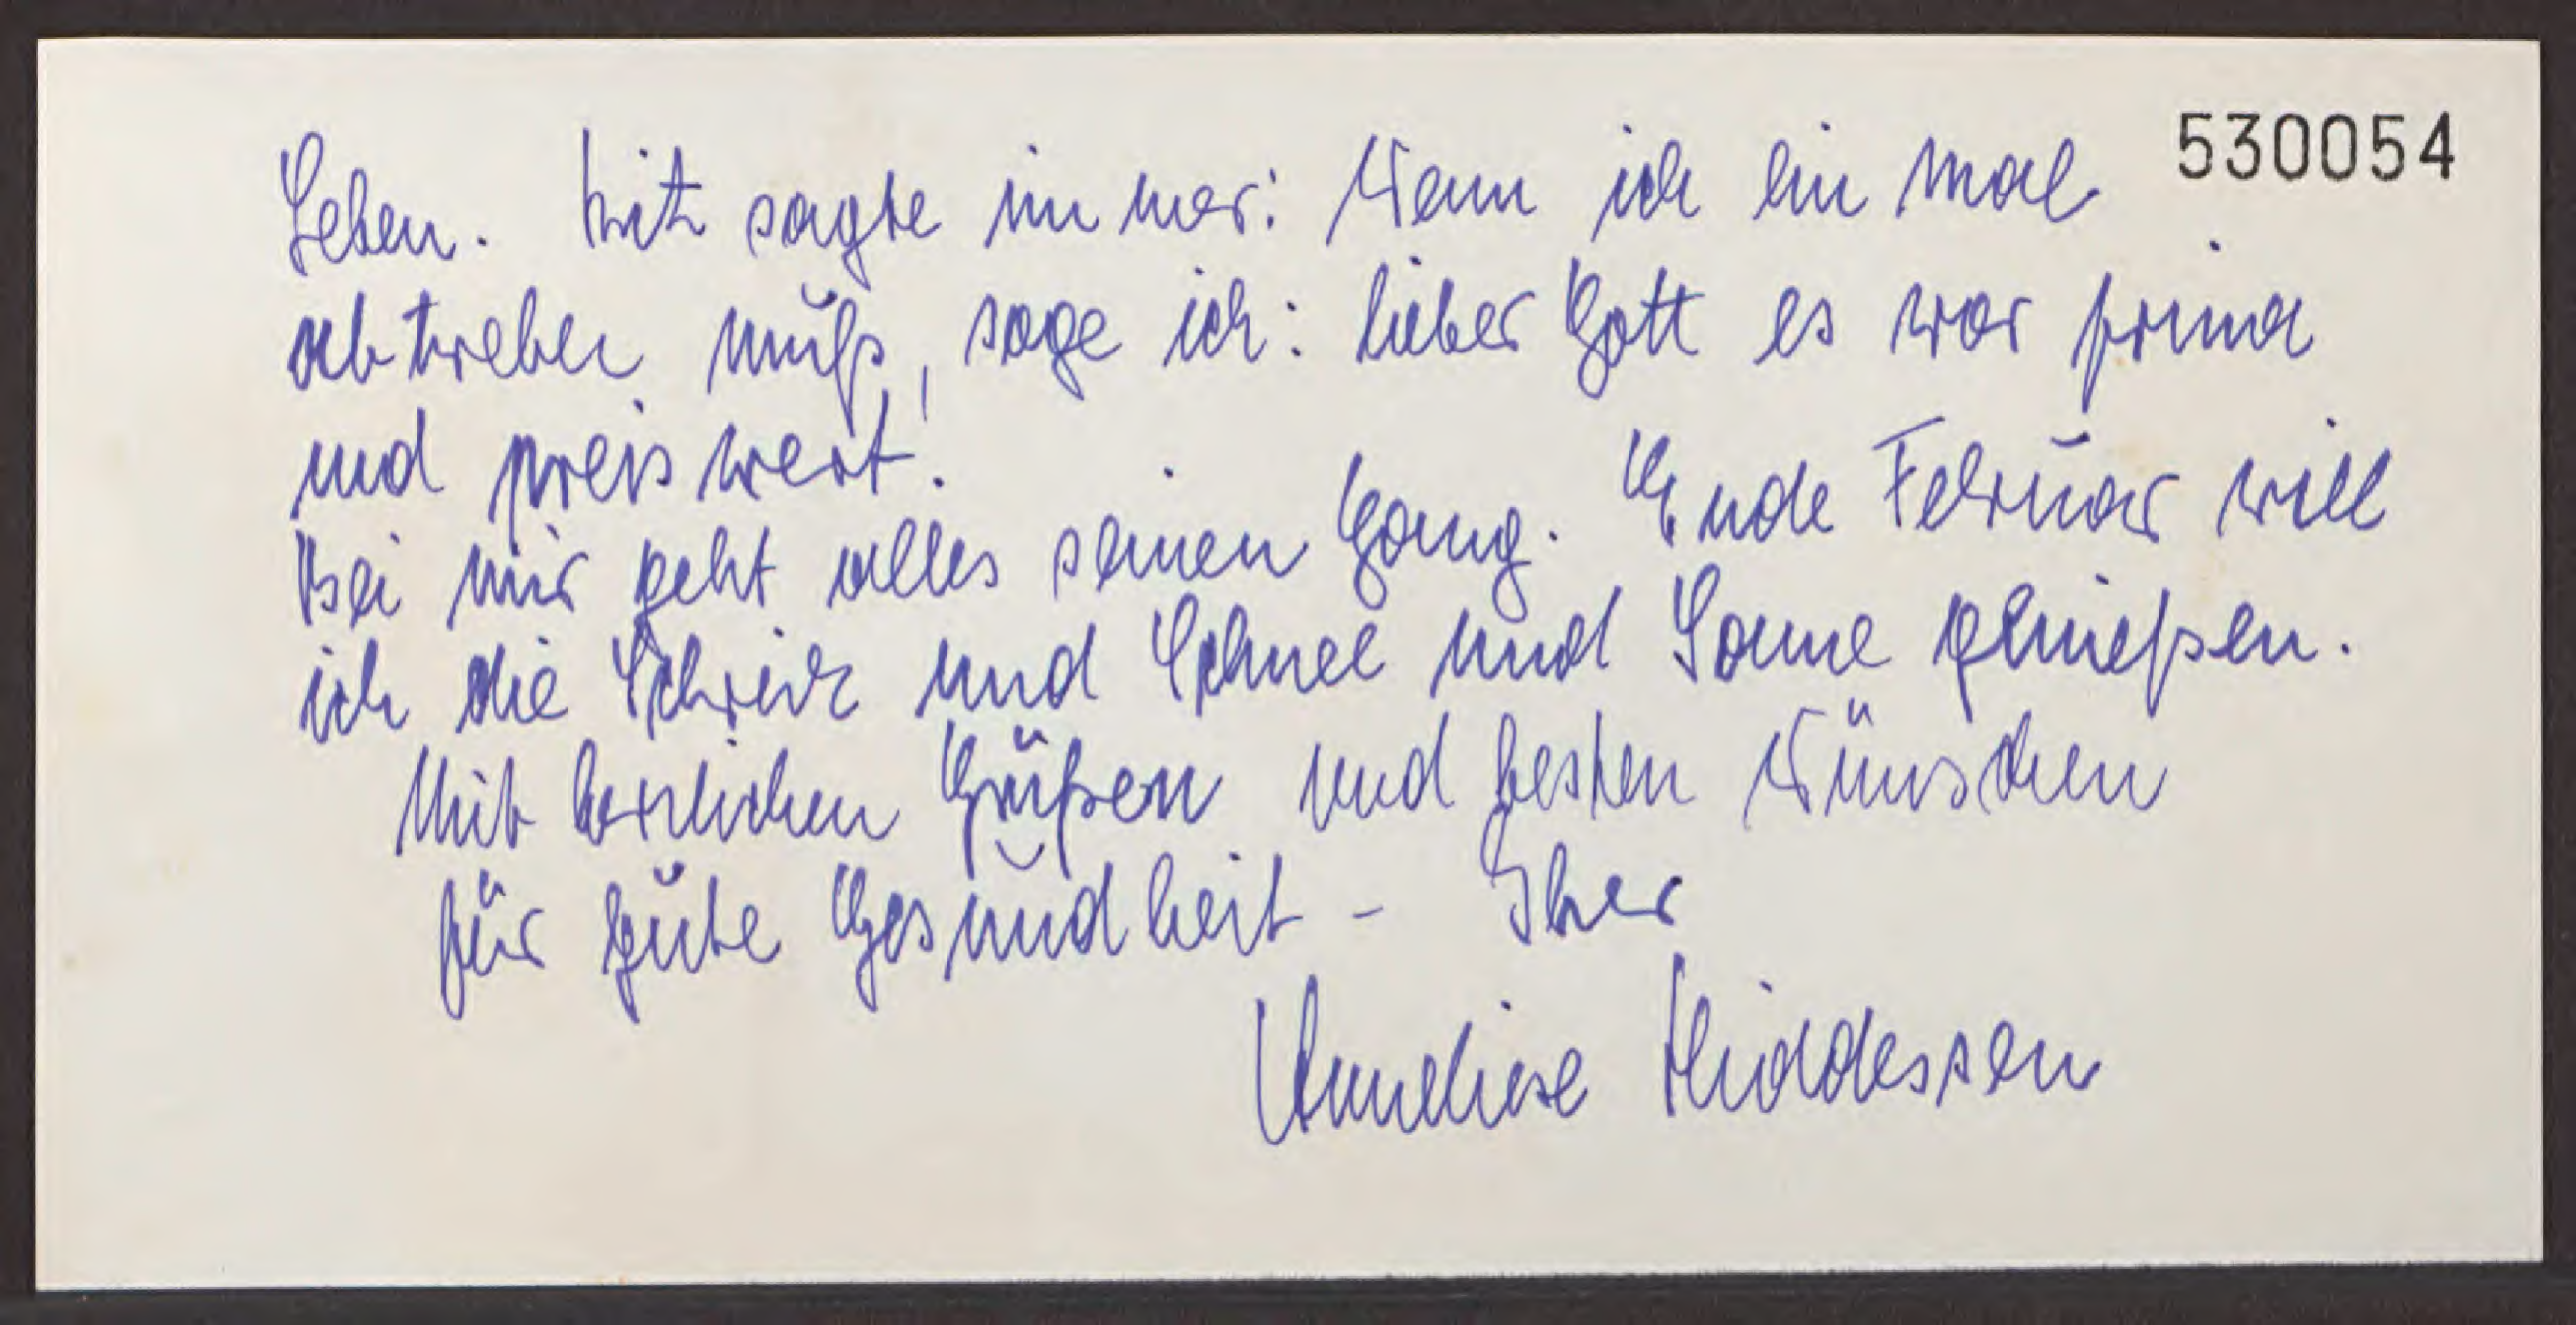 530054
Leben. Fritz sagte immer: Wenn ich ein mal
abtreten muß, sage ich: lieber Gott es war prima
und preiswert!
Bei mir geht alles seinen Gang. Ende Februar will
ich die und Schnee und Sonne genießen.
Mit herzlichen Grüßen und besten Wünschen
für gute Gesundheit - Ihre
Anneliese Hiddessen